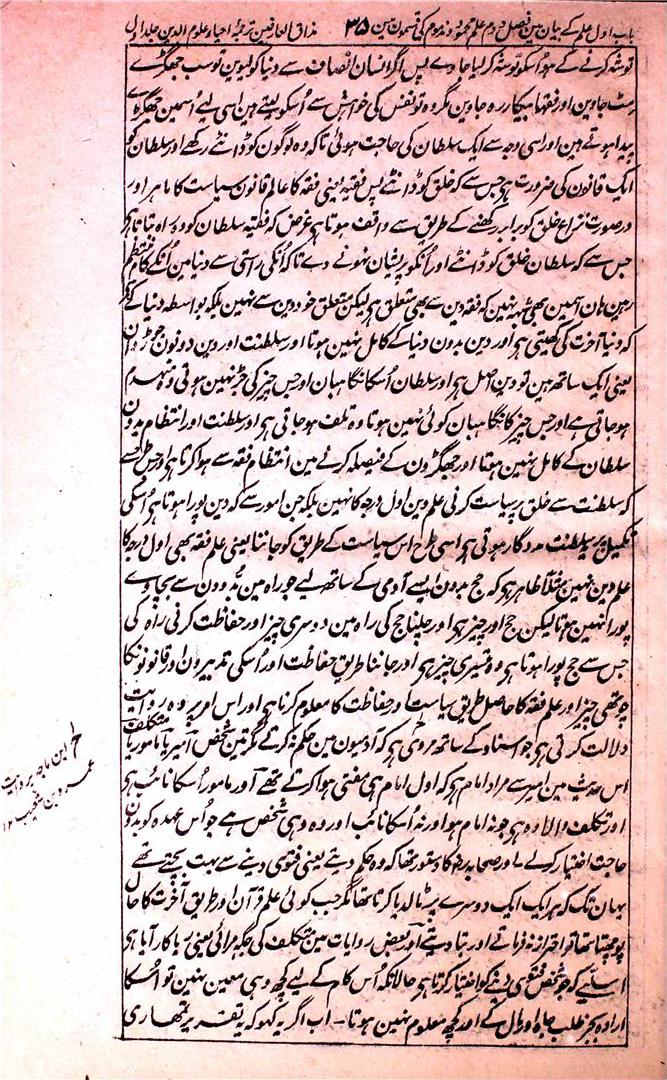 باب اول علم کے بیان مین فصل دوم علم محمود و مذموم کی قسمون مین ۳۵ مذاق العارفین ترجمہ احیاء علوم الدین جلد اول
توشہ کرنے کے ہو اُسکو توشہ کر لیا جاوے پس اگر انسان انصاف سے دنیا کو لیوین تو سب جھگڑے
مٹ جاوین اور فقہا بیکار رہ جاوین مگر وہ تو نفس کی خواہش سے اُسکو لیتے ہین اسی لیے اُسمین جھگڑے
پیدا ہوتے ہین اور اسی وجہ سے ایک سلطان کی حاجت ہوئی تاکہ وہ لوگون کو ڈانٹے رکھے اور سلطان کو
ایک قانون کی ضرورت ہے جس سے کہ خلق کو ڈانٹے پس فقیہ یعنی فقہ کا عالم قانون سیاست کا ماہر اور
درصورت نزاع خلق کو برابر رکھنے کے طریق سے واقف ہوتا ہے غرض کہ فقیہ سلطان کو وہ راہ بتاتا ہے
جس سے کہ سلطان خلق کو ڈانٹے اور اُنکو پریشان نہونے دے تاکہ اُنکی راستی سے دنیا مین اُنکے کام منتظم
رہین ہان اسمین بھی شبہہ نہین کہ فقہ دین سے بھی متعلق ہے لیکن متعلق خود دین سے نہین بلکہ بواسطہ دنیا کے ہے
کہ دنیا آخرت کی کھیتی ہے اور دین بدون دنیا کے کامل نہین ہوتا اور سلطنت اور دین دونون جوڑوان
یعنی ایک ساتھ ہین تو دین اصل ہے اور سلطان اُسکا نگاہبان اور جس چیز کی جڑ نہین ہوتی وہ منہدم
ہو جاتی ہے اور جس چیز کا نگاہبان کوئی نہین ہوتا وہ تلف ہو جاتی ہے اور سلطنت اور انتظام بدون
سلطان کے کامل نہین ہوتا اور جھگڑون کے فیصلہ کرنے مین انتظام فقہ سے ہوا کرتا ہے اور جس طرح
کہ سلطنت سے خلق پر سیاست کرنی علم دین اول درجہ کا نہین بلکہ جن امور سے کہ دین پورا ہوتا ہے اُسکی
تکمیل پر سلطنت مددگار ہوتی ہے اسی طرح اس سیاست کے طریق کو جاننا یعنی علم فقہ بھی اول درجہ کا
علم دین نہین مثلاً ظاہر ہے کہ حج بدون ایسے آدمی کے ساتھ لیے جو راہ مین بدوون سے بچاوے
پورا نہین ہوتا لیکن حج اور چیز ہے اور چلنا حج کی راہ مین دوسری چیز اور حفاظت کرنی راہ کی
جس سے حج پورا ہوتا ہے وہ تیسری چیز ہے اور جاننا طریق حفاظت اور اُسکی تدبیرون اور قانونونکا
چوتھی چیز اور علم فقہ کا حاصل طریق سیاست اور حفاظت کا معلوم کرنا ہے اور اس امر پر وہ روایت
دلالت کرتی ہے جو اسناد کے ساتھ مروی ہے کہ آدمیون مین حکم نہ کرینگے مگر تین شخص امیر یا مامور یا متکلف
اس حدیث مین امیر سے مراد امام ہے کہ اول امام ہی مفتی ہوا کرتے تھے اور مامور اُسکا نائب ہے
اور تکلف والا وہ ہے جو نہ امام ہو اور نہ اُسکا نائب اور وہ وہی شخص ہے جو اُس عہدہ کو بدون
حاجت اختیار کر لے اور صحابہ رض کا دستور تھا کہ وہ حکم دینے یعنی فتوی دینے سے بہت بچتے تھے
یہان تک کہ ہر ایک ایک دوسرے پر ٹالدیا کرتا تھا مگر جب کوئی علم قرآن اور طریق آخرت کا حال
پوچھتا تھا تو احتراز نہ فرماتے اور بتا دیتے اور بعض روایات مین متکلف کی جگہ مرائی یعنی ریاکار آیا ہے
اسلیے کہ جو شخص فتوی دینے کو اختیار کرتا ہے حالانکہ اُس کام کے لیے کچھ وہی معین نہین تو اُسکا
ارادہ بجز طلب جاہ اور مال کے اور کچھ معلوم نہین ہوتا۔ اب اگر یہ کہو کہ یہ تقریر تمھاری
ابن ماجہ بروایت
عمرو بن شعیب ۱۲